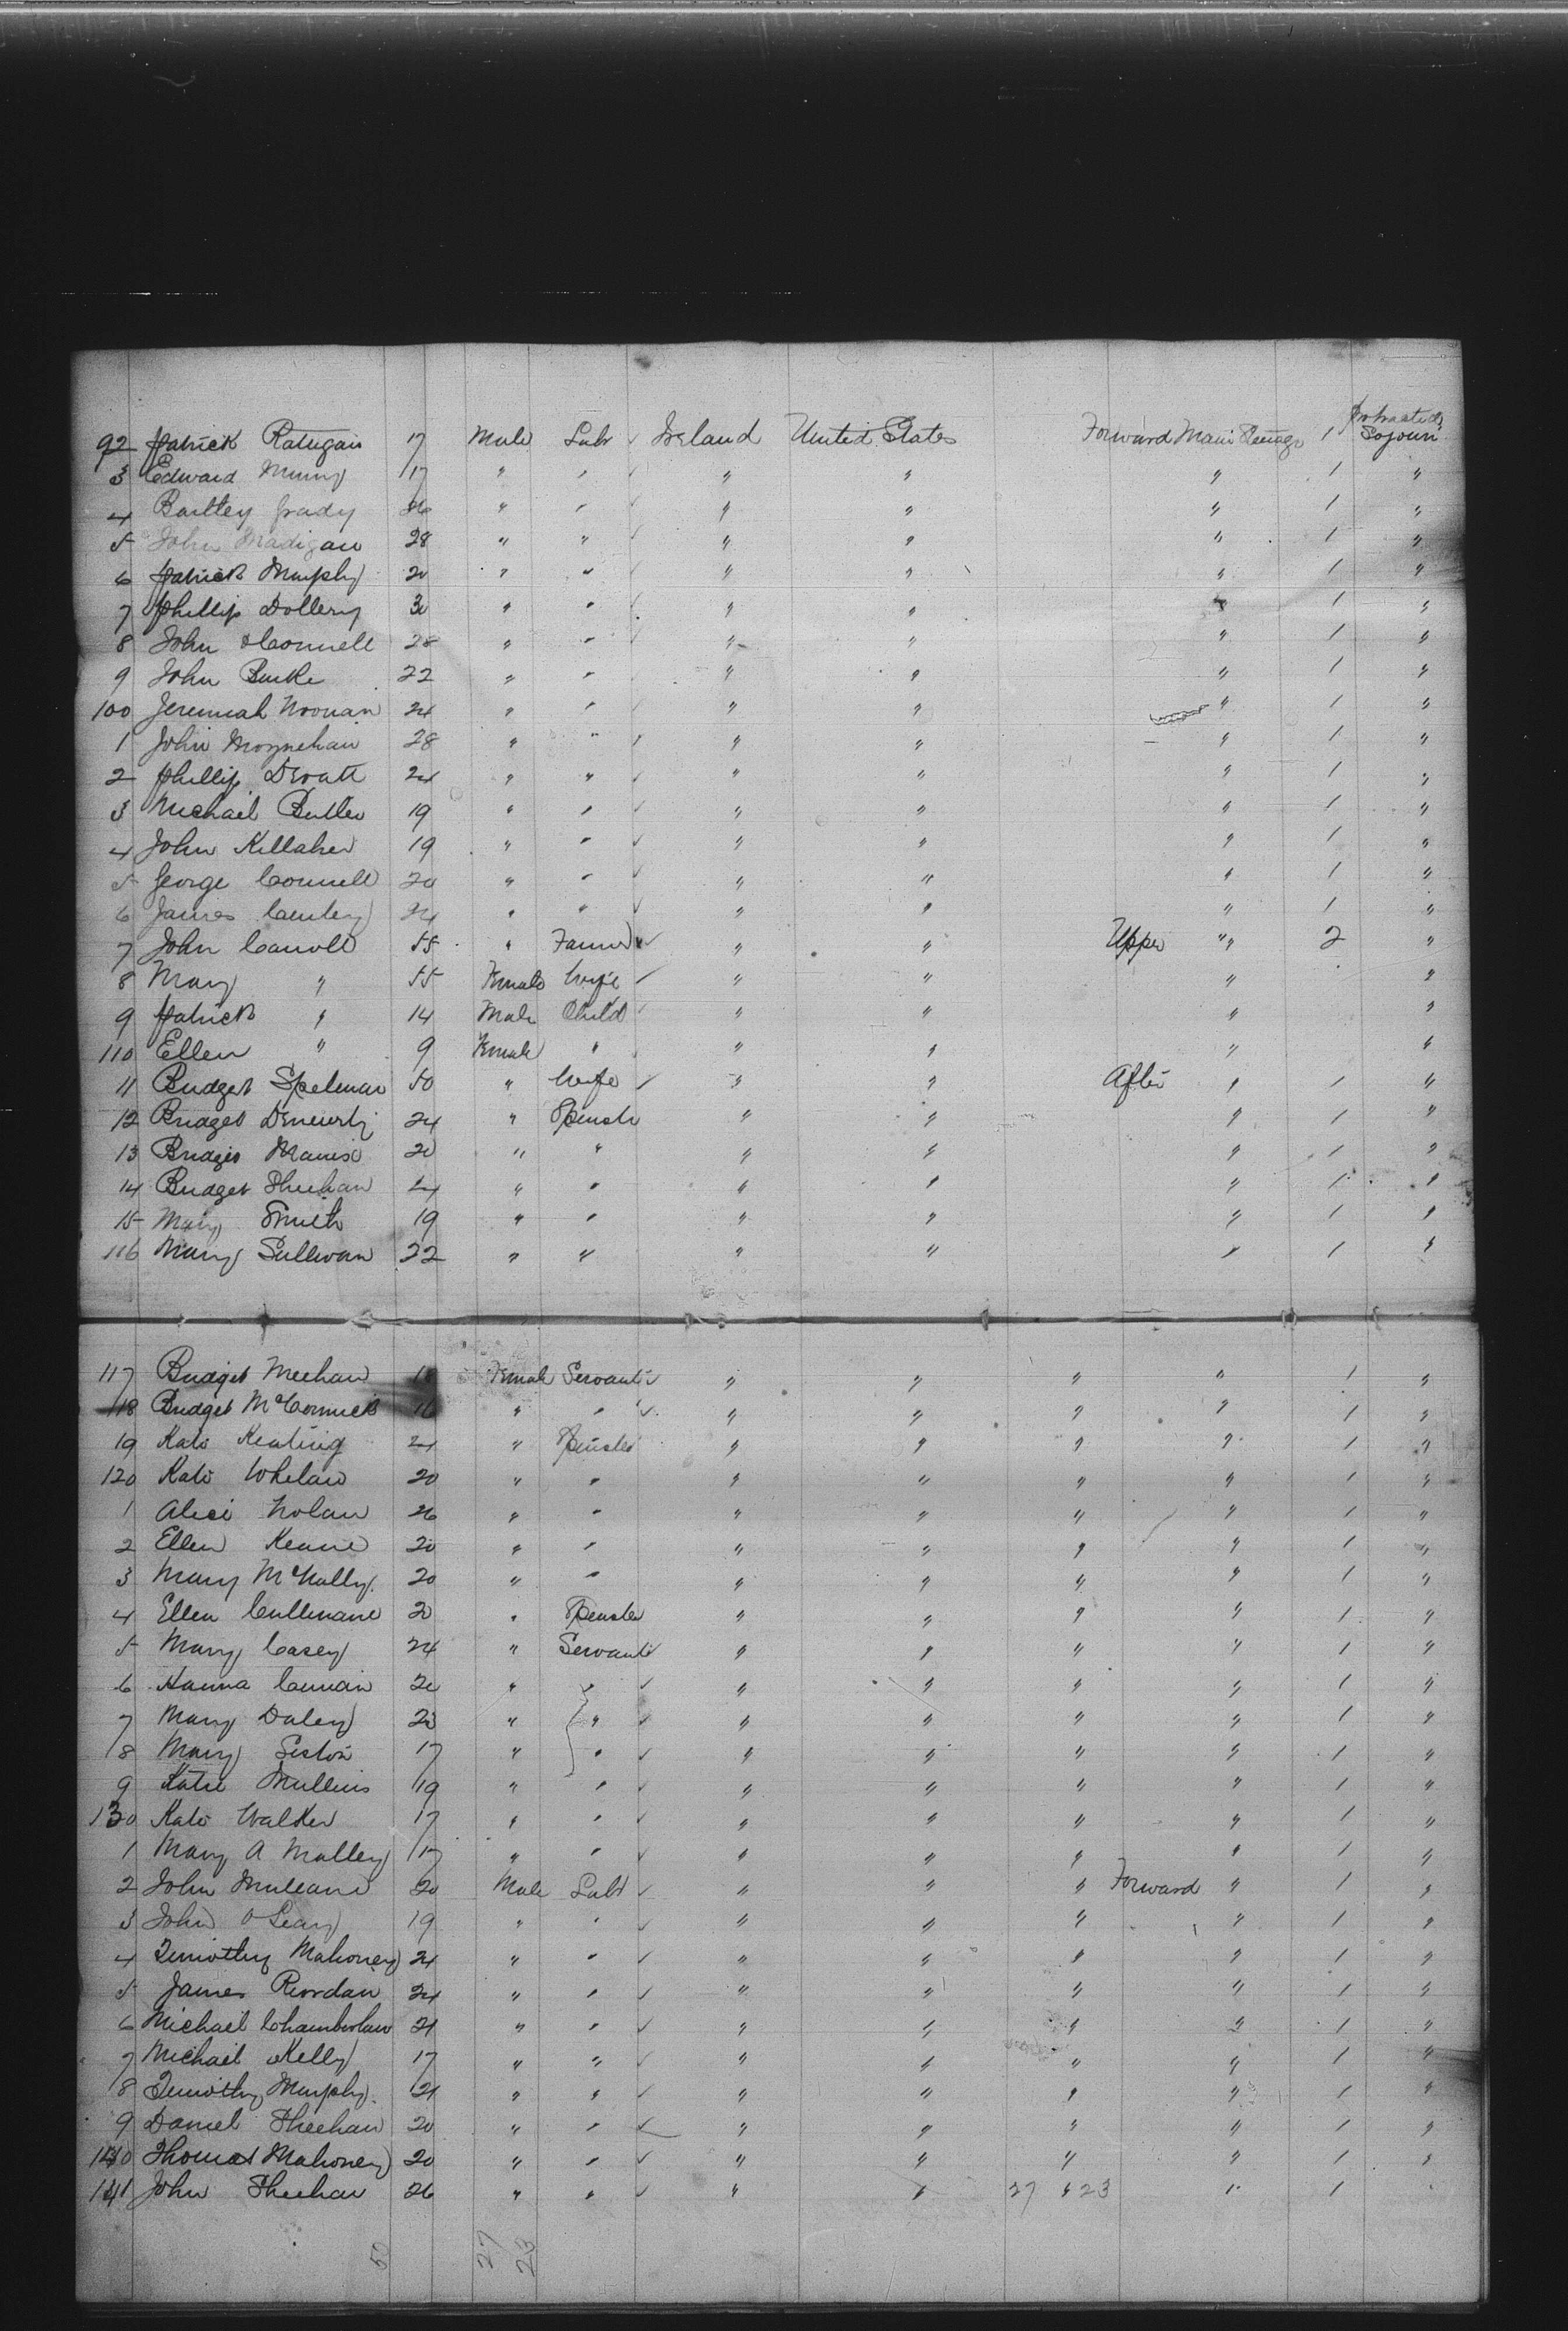 Protracted
92 Patrick Ratigan 17 Male Labr ✓ Ireland United States Forward Main Steerage 1 Sojourn
3 Edward 17 " " ✓ " " " 1 "
4 Bartley Grady 26 " " ✓ " " " 1 "
5 John Madigan 28 " " ✓ " " " 1 "
6 Patrick Murphy 20 " " ✓ " " " 1 "
7 Phillip Dollery 30 " " ✓ " " " 1 "
8 John OConnell 28 " " ✓ " " " 1 "
9 John Burke 22 " " ✓ " " " 1 "
100 Jeremiah Noonan 24 " " ✓ " " " 1 "
1 John Moynehan 28 " " ✓ " " " 1 "
2 Phillip 24 " " ✓ " " " 1 "
3 Michael Butler 19 " " ✓ " " " 1 "
4 John Killaher 19 " " ✓ " " " 1 "
5 George Connell 20 " " ✓ " " " 1 "
6 James 24 " " ✓ " " " 1 "
7 John Carroll 55 " Farmer ✓ " " Upper " 2 "
8 Mary " 55 Female Wife ✓ " " " "
9 Patrick " 14 Male Child ✓ " " " "
110 Ellen " 9 Female " " " " "
11 Bridget Spelman 50 " Wife ✓ " " After " 1 "
12 Bridget 24 " Spinstr " " " 1 "
13 Bridget 20 " " " " " 1 "
14 Bridget Sheehan 24 " " " " " 1 "
15 Mary Smith 19 " " " " " 1 "
116 Mary Sullivan 22 " " " " " 1 "
117 Bridget Meehan 18 Female Servant ✓ " " " " 1 "
118 Bridget McCormick 16 " " ✓ " " " " 1 "
19 Kate Keating 24 " Spinster " " " " 1 "
120 Kate Whelan 20 " " " " " " 1 "
1 Alice Nolan 26 " " " " " " 1 "
2 Ellen Keane 20 " " " " " " 1 "
3 Mary McNally 20 " " " " " " 1 "
4 Ellen Cullinane 20 " Spinster " " " " 1 "
5 Mary Casey 24 " Servant " " " " 1 "
6 Hanna 20 " " ✓ " " " " 1 "
7 Mary Daley 23 " " ✓ " " " " 1 "
8 Mary 17 " " ✓ " " " " 1 "
9 Katie Mullins 19 " " ✓ " " " " 1 "
130 Kate Walker 17 " " ✓ " " " " 1 "
1 Mary A Malley 17 " " ✓ " " " " 1 "
2 John 20 Male Labr ✓ " " " Forward " 1 "
3 John O Leary 19 " " ✓ " " " " 1 "
4 Timothy Mahoney 24 " " ✓ " " " " 1 "
5 James Riordan 24 " " ✓ " " " " 1 "
6 Michael Chamberlain 21 " " ✓ " " " " 1 "
7 Michael Kelly 17 " " ✓ " " " " 1 "
8 Timothy Murphy 21 " " ✓ " " " " 1 "
9 Daniel Sheehan 20 " " ✓ " " " " 1 "
140 Thomas Mahoney 20 " " ✓ " " " " 1 "
141 John Sheehan 26 " " ✓ " " 27 " 23 " 1
50 27 23